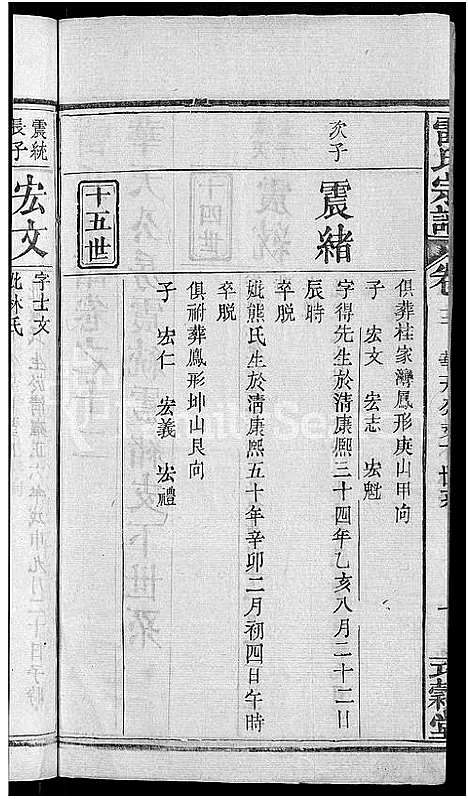 雷氏宗譜
卷
十五世
俱葬桂家灣鳳形庚山甲向
子 宏文 宏志 宏魁
次子 震緒
字得先生於清康熙三十四年乙亥八月二十二日
辰時
卒脫
娥熊氏生於清康熙五十年辛卯二月初四日午時
卒脫
俱祔葬鳳形坤山艮向
子 宏仁 宏義 宏禮
震統
長子 宏文
字士文
妣林氏